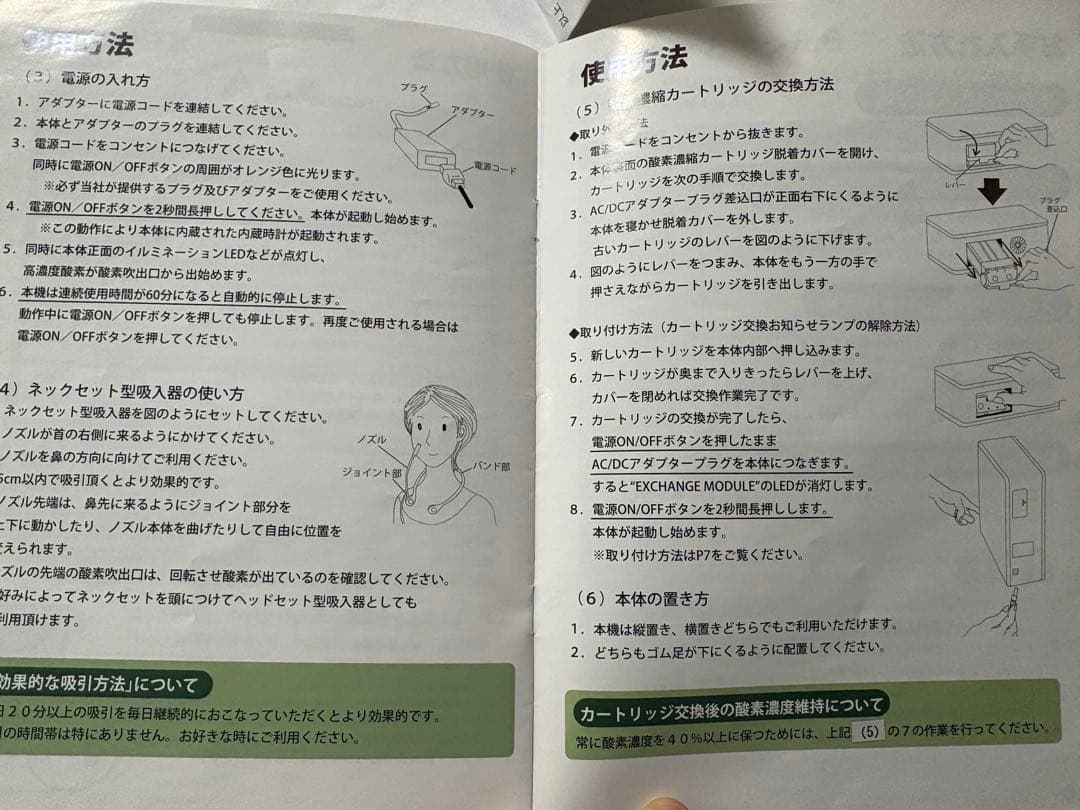 以上
使用方法
（3）電源の入れ方
1．アダプターに電源コードを連結してください。
2．本体とアダプターのプラグを連結してください。
3．電源コードをコンセントにつなげてください。
同時に電源ON／OFFボタンの周囲がオレンジ色に光ります。
※必ず当社が提供するプラグ及びアダプターをご使用ください。
4．電源ON／OFFボタンを2秒間長押ししてください。本体が起動し始めます。
※この動作により本体に内蔵された内蔵時計が起動されます。
5．同時に本体正面のイルミネーションLEDなどが点灯し、
高濃度酸素が酸素吹出口から出始めます。
6．本機は連続使用時間が60分になると自動的に停止します。
動作中に電源ON／OFFボタンを押しても停止します。再度ご使用される場合は
電源ON／OFFボタンを押してください。
プラグ
アダプター
電源コード
4）ネックセット型吸入器の使い方
ネックセット型吸入器を図のようにセットしてください。
ノズルが首の右側に来るようにかけてください。
ノズルを鼻の方向に向けてご利用ください。
5cm以内で吸引頂くとより効果的です。
ノズル先端は、鼻先に来るようにジョイント部分を
上下に動かしたり、ノズル本体を曲げたりして自由に位置を
変えられます。
ズルの先端の酸素吹出口は、回転させ酸素が出ているのを確認してください。
好みによってネックセットを頭につけてヘッドセット型吸入器としても
利用頂けます。
ノズル
ジョイント部
バンド部
効果的な吸引方法」について
日２０分以上の吸引を毎日継続的におこなっていただくとより効果的です。
引の時間帯は特にありません。お好きな時にご利用ください。
使用方法
（5）濃縮カートリッジの交換方法
◆取り外方法
1．電源コードをコンセントから抜きます。
2．本体裏面の酸素濃縮カートリッジ脱着カバーを開け、
カートリッジを次の手順で交換します。
3．AC/DCアダプタープラグ差込口が正面右下にくるように
本体を寝かせ脱着カバーを外します。
古いカートリッジのレバーを図のように下げます。
4．図のようにレバーをつまみ、本体をもう一方の手で
押さえながらカートリッジを引き出します。
レバー
プラグ
差込口
◆取り付け方法（カートリッジ交換お知らせランプの解除方法）
5．新しいカートリッジを本体内部へ押し込みます。
6．カートリッジが奥まで入りきったらレバーを上げ、
カバーを閉めれば交換作業完了です。
7．カートリッジの交換が完了したら、
電源ON/OFFボタンを押したまま
AC/DCアダプタープラグを本体につなぎます。
すると“EXCHANGE MODULE”のLEDが消灯します。
8．電源ON/OFFボタンを2秒間長押しします。
本体が起動し始めます。
※取り付け方法はP7をご覧ください。
（6）本体の置き方
1．本機は縦置き、横置きどちらでもご利用いただけます。
2．どちらもゴム足が下にくるように配置してください。
カートリッジ交換後の酸素濃度維持について
常に酸素濃度を４０％以上に保つためには、上記（5）の７の作業を行ってください。